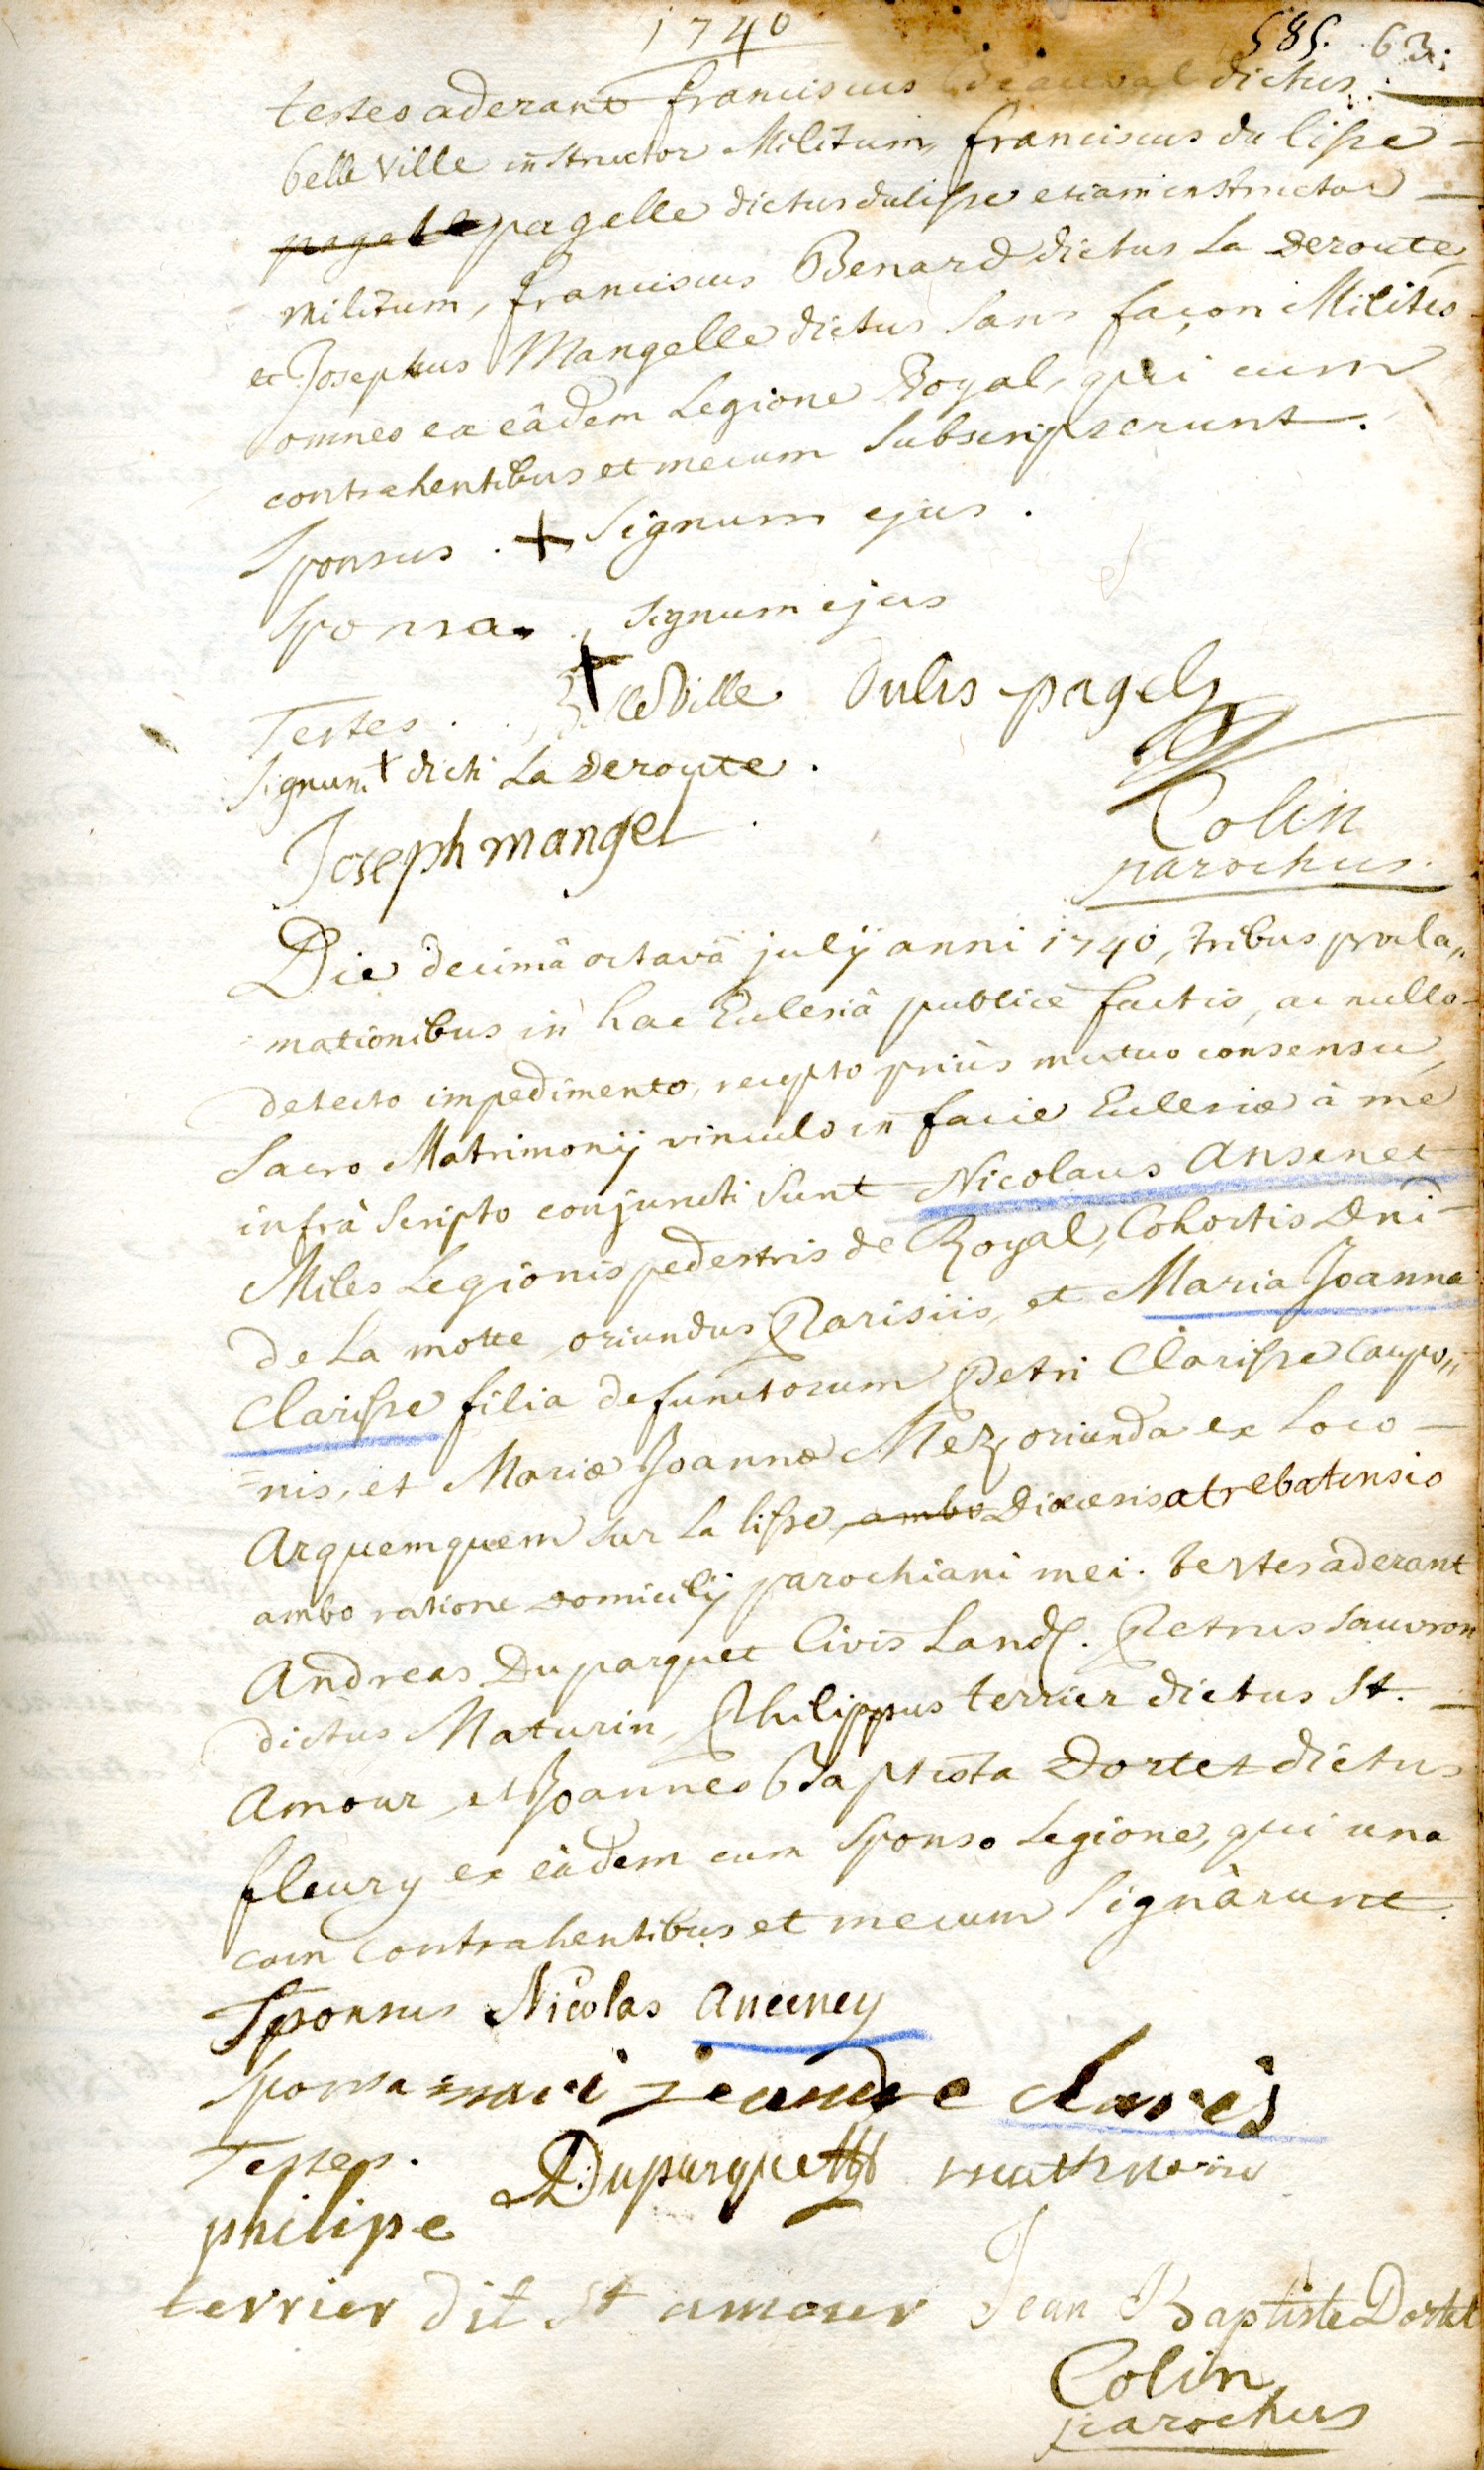 1740
585. 63.
testes aderant franciscus dictus
belle Ville instructor Militum, franciscus du lisse
pagelle pagelle dictus dulisse etiam instructor
militum, franciscus Benard dictus La Deroute,
et Josephus Mangelle dictus Sans façon Milites
omnes ex eâdem Legione Royal, qui cum
contrahentibus et mecum Subscripserunt.
Sponsus . + Signum ejus .
Sponsa . + signum ejus
Testes . Belle Ville Dulis pagel
Signum + dicti La Deroute .
Joseph mangel .
Colin
parochus.
Die decimâ octavâ julij anni 1740, tribus procla,,
mationibus in hac Ecclesiâ publicè factis, ac nullo
detecto impedimento, recepto priùs mutuo consensu,
Sacro Matrimonij vinculo in facie Ecclesiæ à me
infrà Scripto conjuncti Sunt Nicolaus Ansenet
Miles Legionis pedestris de Royal, Cohortis Dni
de La motte oriundus Parisiis, et Maria Joanna
Clarisse filia defunctorum Petri Clarisse Caupo,,
=nis, et Mariæ Joannæ Mez oriunda ex Loco
Arquemquem sur La lisse, ambo Diœcesis atrebatensis
ambo ratione Domicilij parochiani mei. testes aderant
Andreas Duparquet Civis Land. Petrus Sauvron
dictus Maturin, Philippus terrier dictus St.
Amour, et Joannes Baptista Dortet dictus
fleury ex eâdem cum Sponso Legione, qui una
cum contrahentibus et mecum Signàrunt.
Sponsus Nicolas anceney
Sponsa mari jeanne clares
Testes. Duparquett
philipe
terrier dit St amour Jean Baptiste Dortet
Colin
parochus